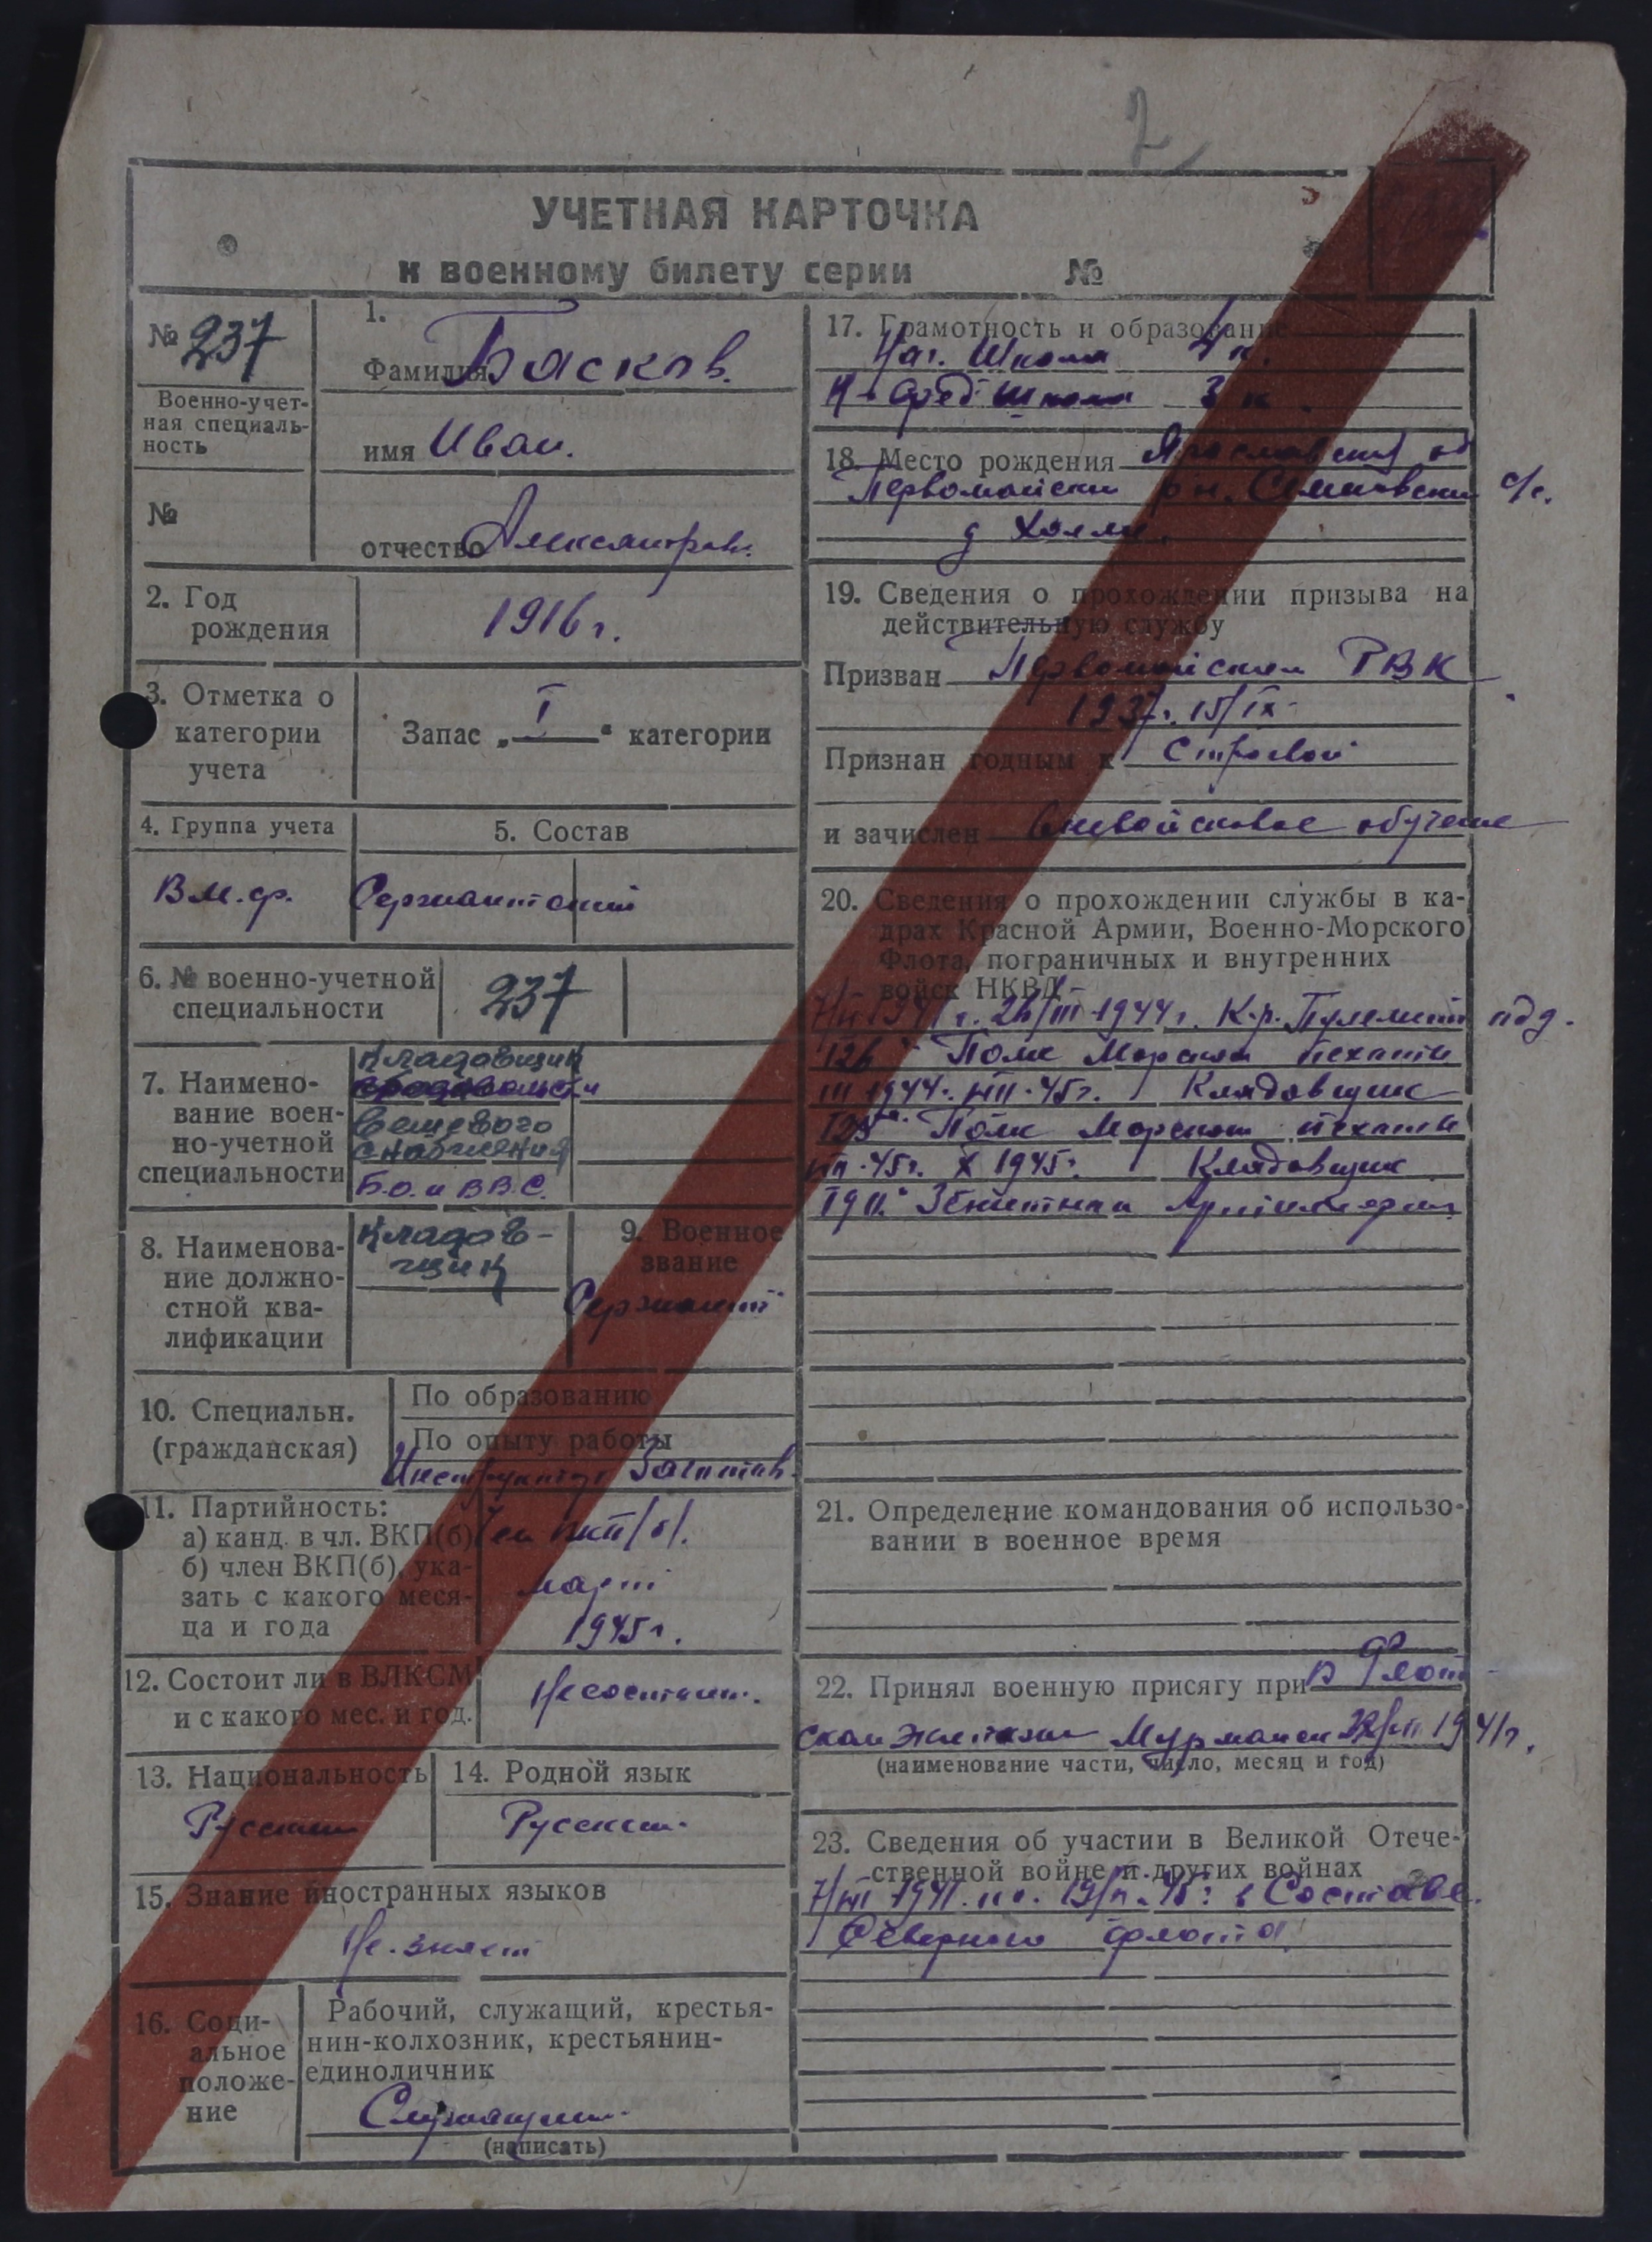 2
УЧЕТНАЯ КАРТОЧКА
к военному билету серии №
№ 237
Военно-учет-
ная специаль-
ность
№
1.
Фамилия Басков.
имя Иван.
отчество Александров.
2. Год
рождения
1916 г.
3. Отметка о
категории
учета
Запас „ I " категории
4. Группа учета
В.м.ф.
5. Состав
Сержантский
6. № военно-учетной
специальности
237
7. Наимено-
вание воен-
но-учетной
специальности
Кладовщик
вещевого
снабжения
Б.О. и ВВС.
8. Наименова-
ние должно-
стной ква-
лификации
Кладов-
щик
9. Военное
звание
Сержант
10. Специальн.
(гражданская)
По образованию
По опыту работы
Инструктор
11. Партийность:
а) канд. в чл. ВКП(б)
б) член ВКП(б), ука-
зать с какого меся-
ца и года
Чен ВКП/б/.
март
1945 г.
12. Состоит ли в ВЛКСМ
и с какого мес. и год.
Несостоит.
13. Национальность
Русский
14. Родной язык
Русский.
15. Знание иностранных языков
Не знает
16. Соци-
альное
положе-
ние
Рабочий, служащий, крестья-
нин-колхозник, крестьянин-
единоличник
Служащий.
(написать)
17. Грамотность и образование
Нач. Школа 4 к.
Н-сред школа 3 к.
18. Место рождения Ярославский об
Первомайский р-н. Семеновский с/с.
д Холм.
19. Сведения о прохождении призыва на
действительную службу
Призван Первомайским РВК
1937 г. 15/IX
Признан годным к Строевой
и зачислен Вневойсковое обучение
20. Сведения о прохождении службы в ка-
драх Красной Армии, Военно-Морского
Флота, пограничных и внутренних
войск НКВД
1944 г. К.р. Пулеметн
126 Полк Морской пехоты
III 1944 45 г. Кладовщик
Полк Морской пехоты
45 г. X 1945 г. Кладовщик
Зенитная Артиллерия
21. Определение командования об использо-
вании в военное время
22. Принял военную присягу при В Флот-
ском экипаже Мурманск 1941 г.
(наименование части, число, месяц и год)
23. Сведения об участии в Великой Отече-
ственной войне и других войнах
1941 по 45 г. в Составе
Северного флота.